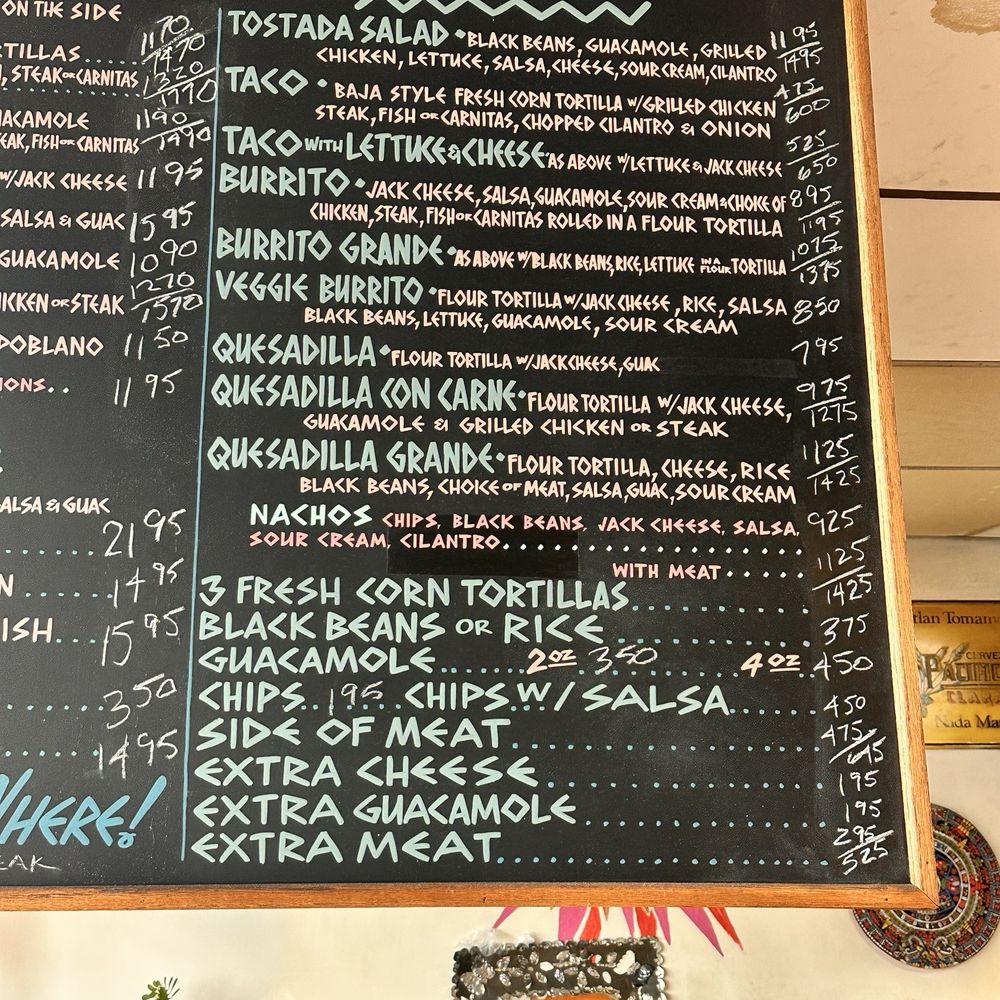 ON THE SIDE
1170
1470
RTILLAS.....
, STEAK OR CARNITAS
1320
1770
UACAMOLE
1190
EAK, FISH OR CARNITAS
1490
W/JACK CHEESE 1195
SALSA & GUAC 1595
GUACAMOLE 1090
1270
ICKEN OR STEAK 1570
POBLANO 1150
IONS.. 1195
SALSA & GUAC
.....2195
N ....1495
ISH....1595
.....350
.....1495
HERE!
EAK
TOSTADA SALAD • BLACK BEANS, GUACAMOLE, GRILLED 1195
CHICKEN, LETTUCE, SALSA, CHEESE, SOUR CREAM, CILANTRO 1495
TACO • BAJA STYLE FRESH CORN TORTILLA W/GRILLED CHICKEN 475
STEAK, FISH OR CARNITAS, CHOPPED CILANTRO & ONION 600
TACO WITH LETTUCE & CHEESE • AS ABOVE W/LETTUCE & JACK CHEESE 525
650
BURRITO • JACK CHEESE, SALSA, GUACAMOLE, SOUR CREAM & CHOICE OF 895
CHICKEN, STEAK, FISH OR CARNITAS ROLLED IN A FLOUR TORTILLA 1195
BURRITO GRANDE • AS ABOVE W/BLACK BEANS, RICE, LETTUCE IN A FLOUR TORTILLA 1075
1375
VEGGIE BURRITO • FLOUR TORTILLA W/JACK CHEESE, RICE, SALSA 850
BLACK BEANS, LETTUCE, GUACAMOLE, SOUR CREAM
QUESADILLA • FLOUR TORTILLA W/JACK CHEESE, GUAC 795
QUESADILLA CON CARNE • FLOUR TORTILLA W/JACK CHEESE, 975
GUACAMOLE & GRILLED CHICKEN OR STEAK 1275
QUESADILLA GRANDE • FLOUR TORTILLA, CHEESE, RICE 1125
BLACK BEANS, CHOICE OF MEAT, SALSA, GUAC, SOUR CREAM 1425
NACHOS CHIPS, BLACK BEANS, JACK CHEESE, SALSA, 925
SOUR CREAM, CILANTRO..................
WITH MEAT..... 1125
1425
3 FRESH CORN TORTILLAS.............. 375
BLACK BEANS OR RICE..............
GUACAMOLE.......2 OZ 350 4 OZ 450
CHIPS..195..CHIPS W/SALSA....... 450
SIDE OF MEAT.................... 475
645
EXTRA CHEESE................. 195
EXTRA GUACAMOLE.............. 195
EXTRA MEAT.................... 295
525
tlan Tomam
CERVEZ
PACIFI
CLARA
Nada Ma